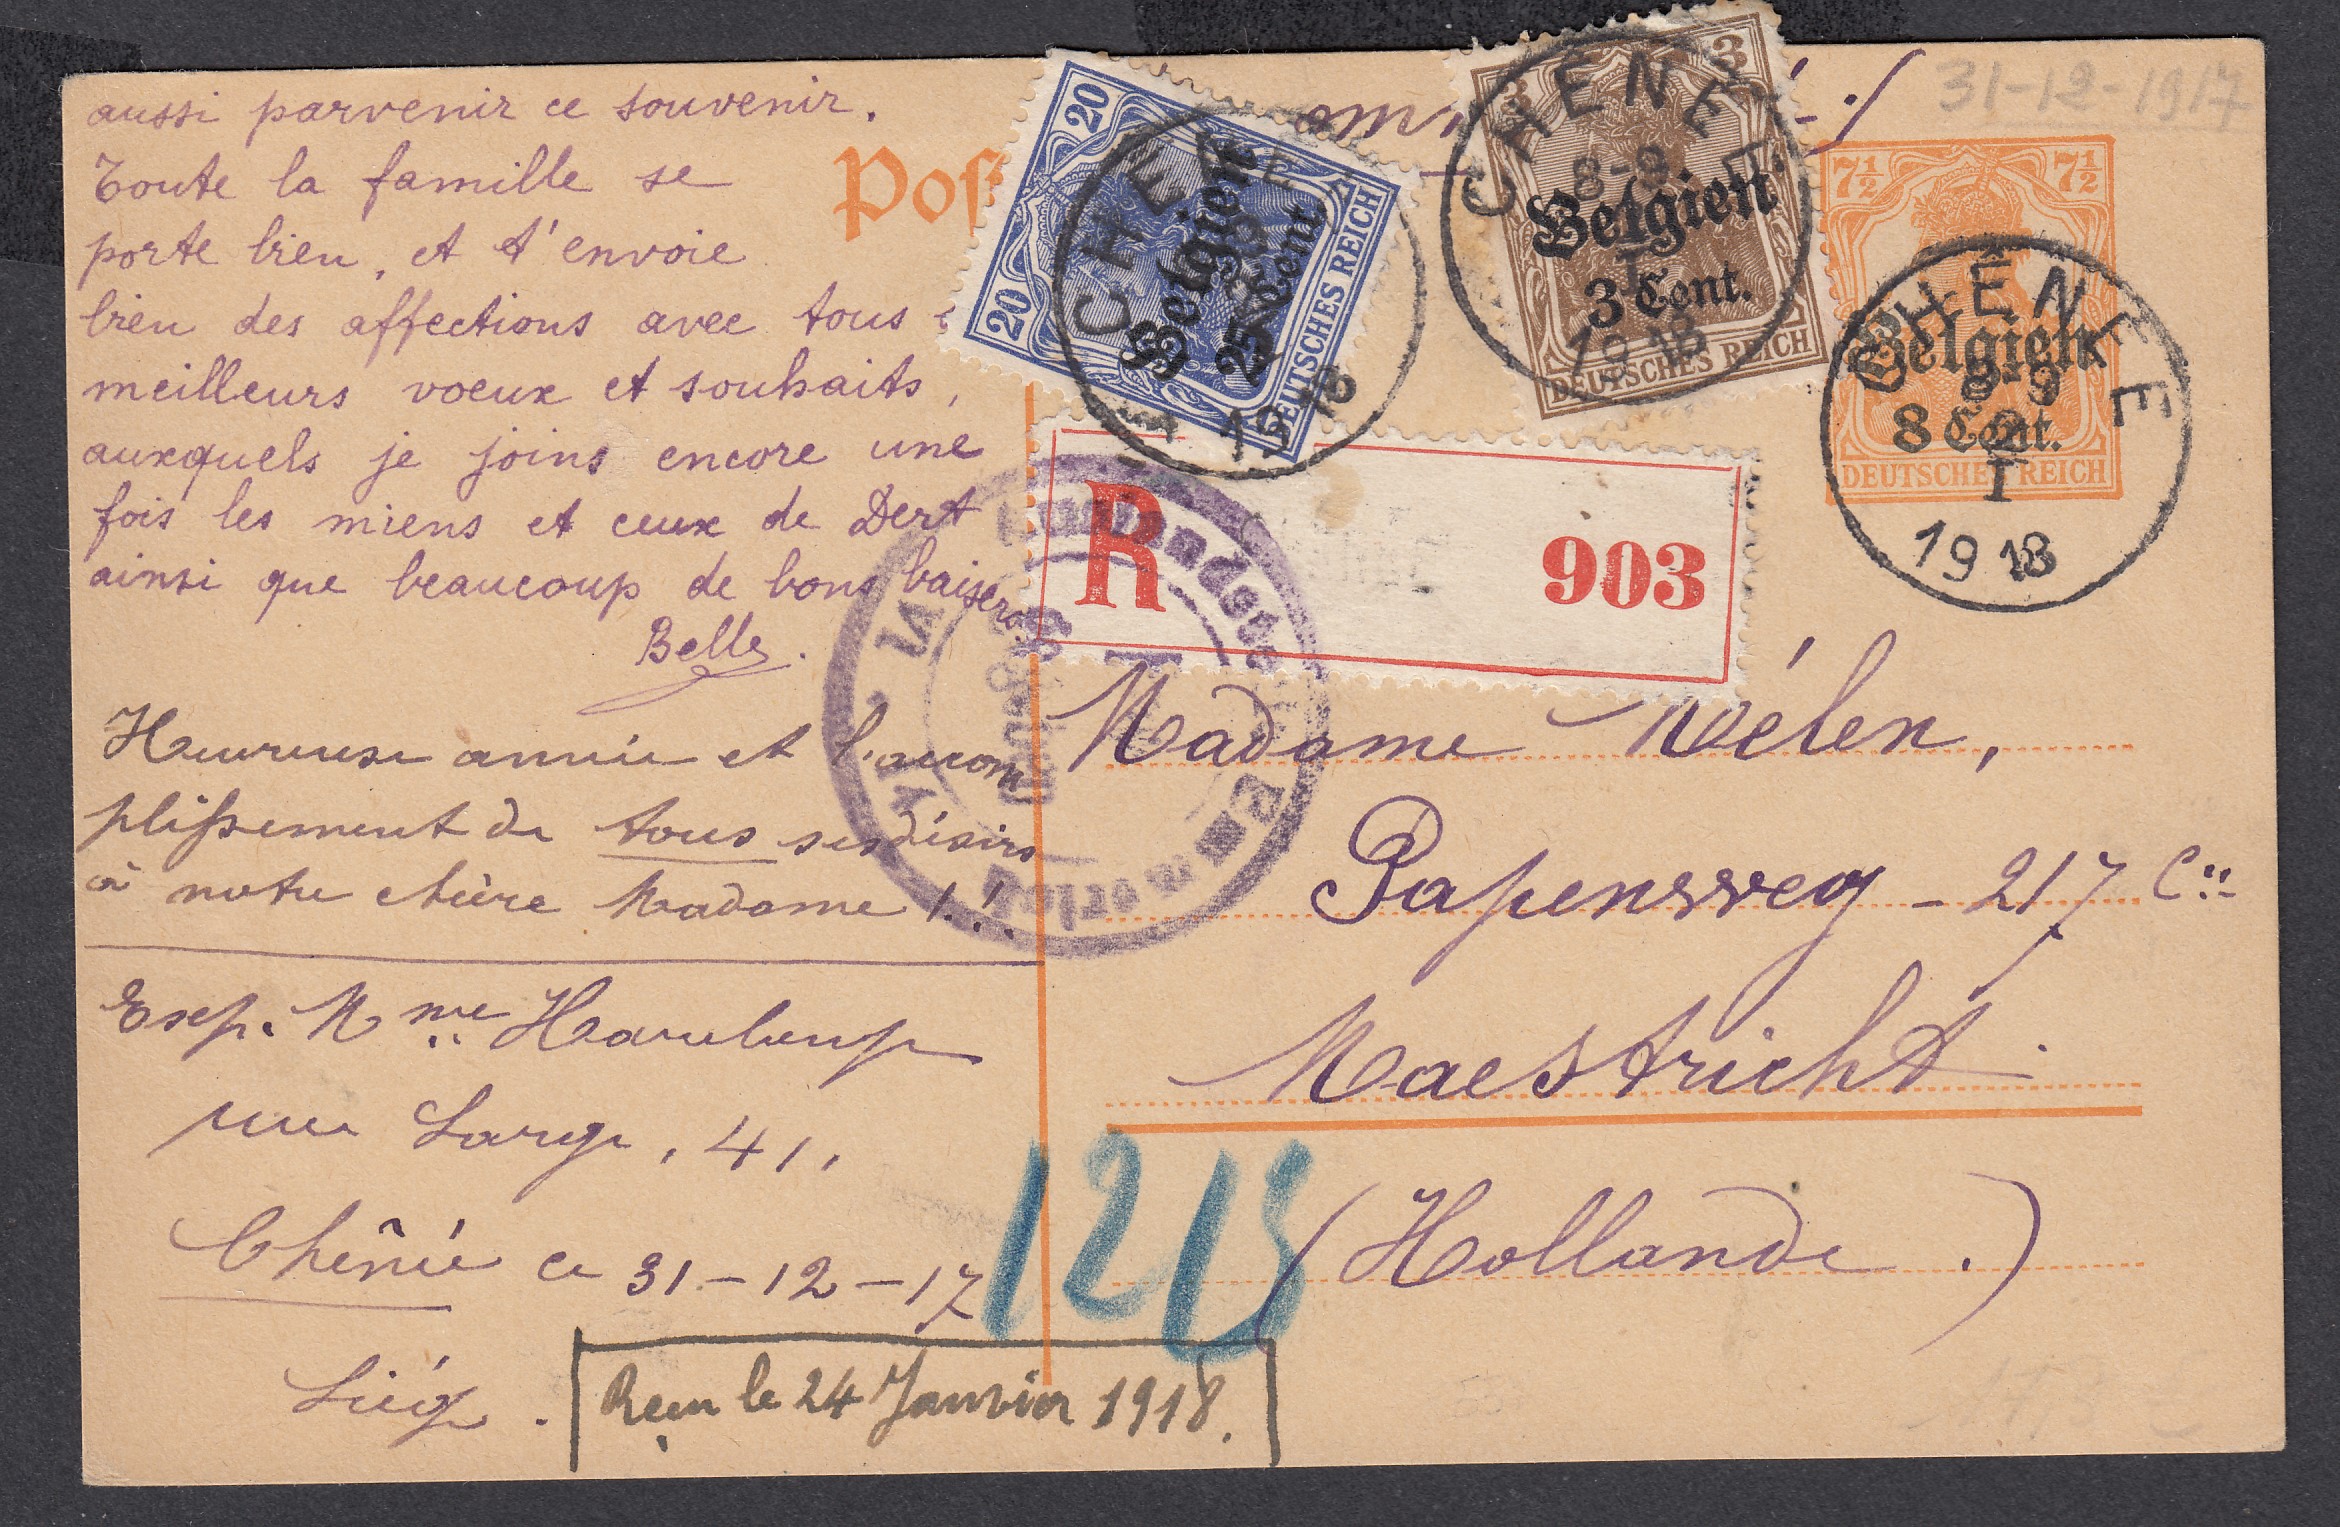 aussi parvenir ce souvenir.
Toute la famille se
porte bien, et t'envoie
bien des affections avec tous
meilleurs voeux et souhaits,
auxquels je joins encore une
fois les miens et ceux de Dert
ainsi que beaucoup de bons baisers.
Belle.
Heureuse année et l'accom
plissement de tous ses désirs
à notre chère Madame !.!.
Exp. Mme
rue Large, 41,
Chênée ce 31-12-17
Liége.
Reçu le 24 Janvier 1918.
Pos
20 20
Belgien
25 Cent
DEUTSCHES REICH
CHENEE
1918
3 3
Belgien
3 Cent.
DEUTSCHES REICH
CHENEE
8-9
I
1918
31-12-1917
7½ 7½
Belgien
8 Cent.
DEUTSCHES REICH
CHÊNÉE
8-9
2
I
1918
R 903
Emmerich
Madame Mélen,
Papenweg - 217 Cu
Maestricht
(Hollande.)